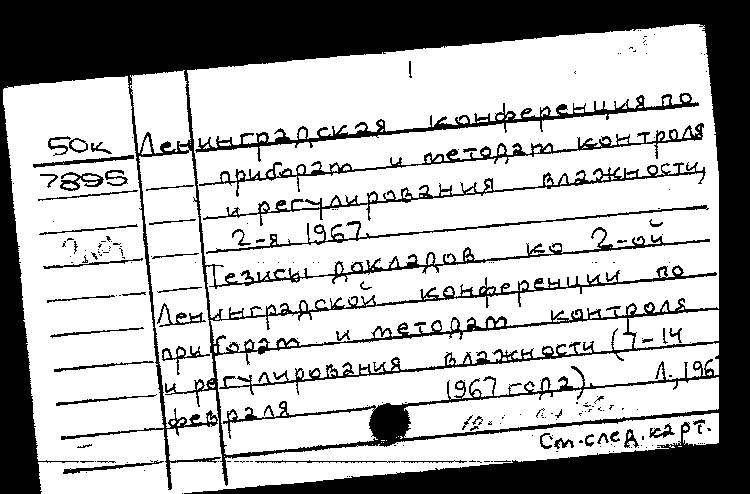 50к Ленинградская конференция по
7895 приборам и методам контроля
и регулирования влажности,
2-я. 1967.
Тезисы докладов ко 2-ой
Ленинградской конференции по
приборам и методам контроля
и регулирования влажности (7-14
февраля 1967 года). Л., 196
См. след. карт.